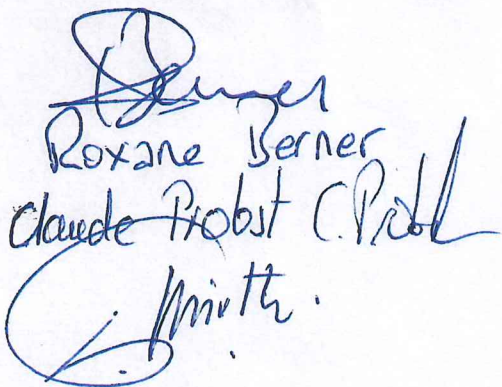 Berner
Roxane Berner
Claude Probst C. Probst